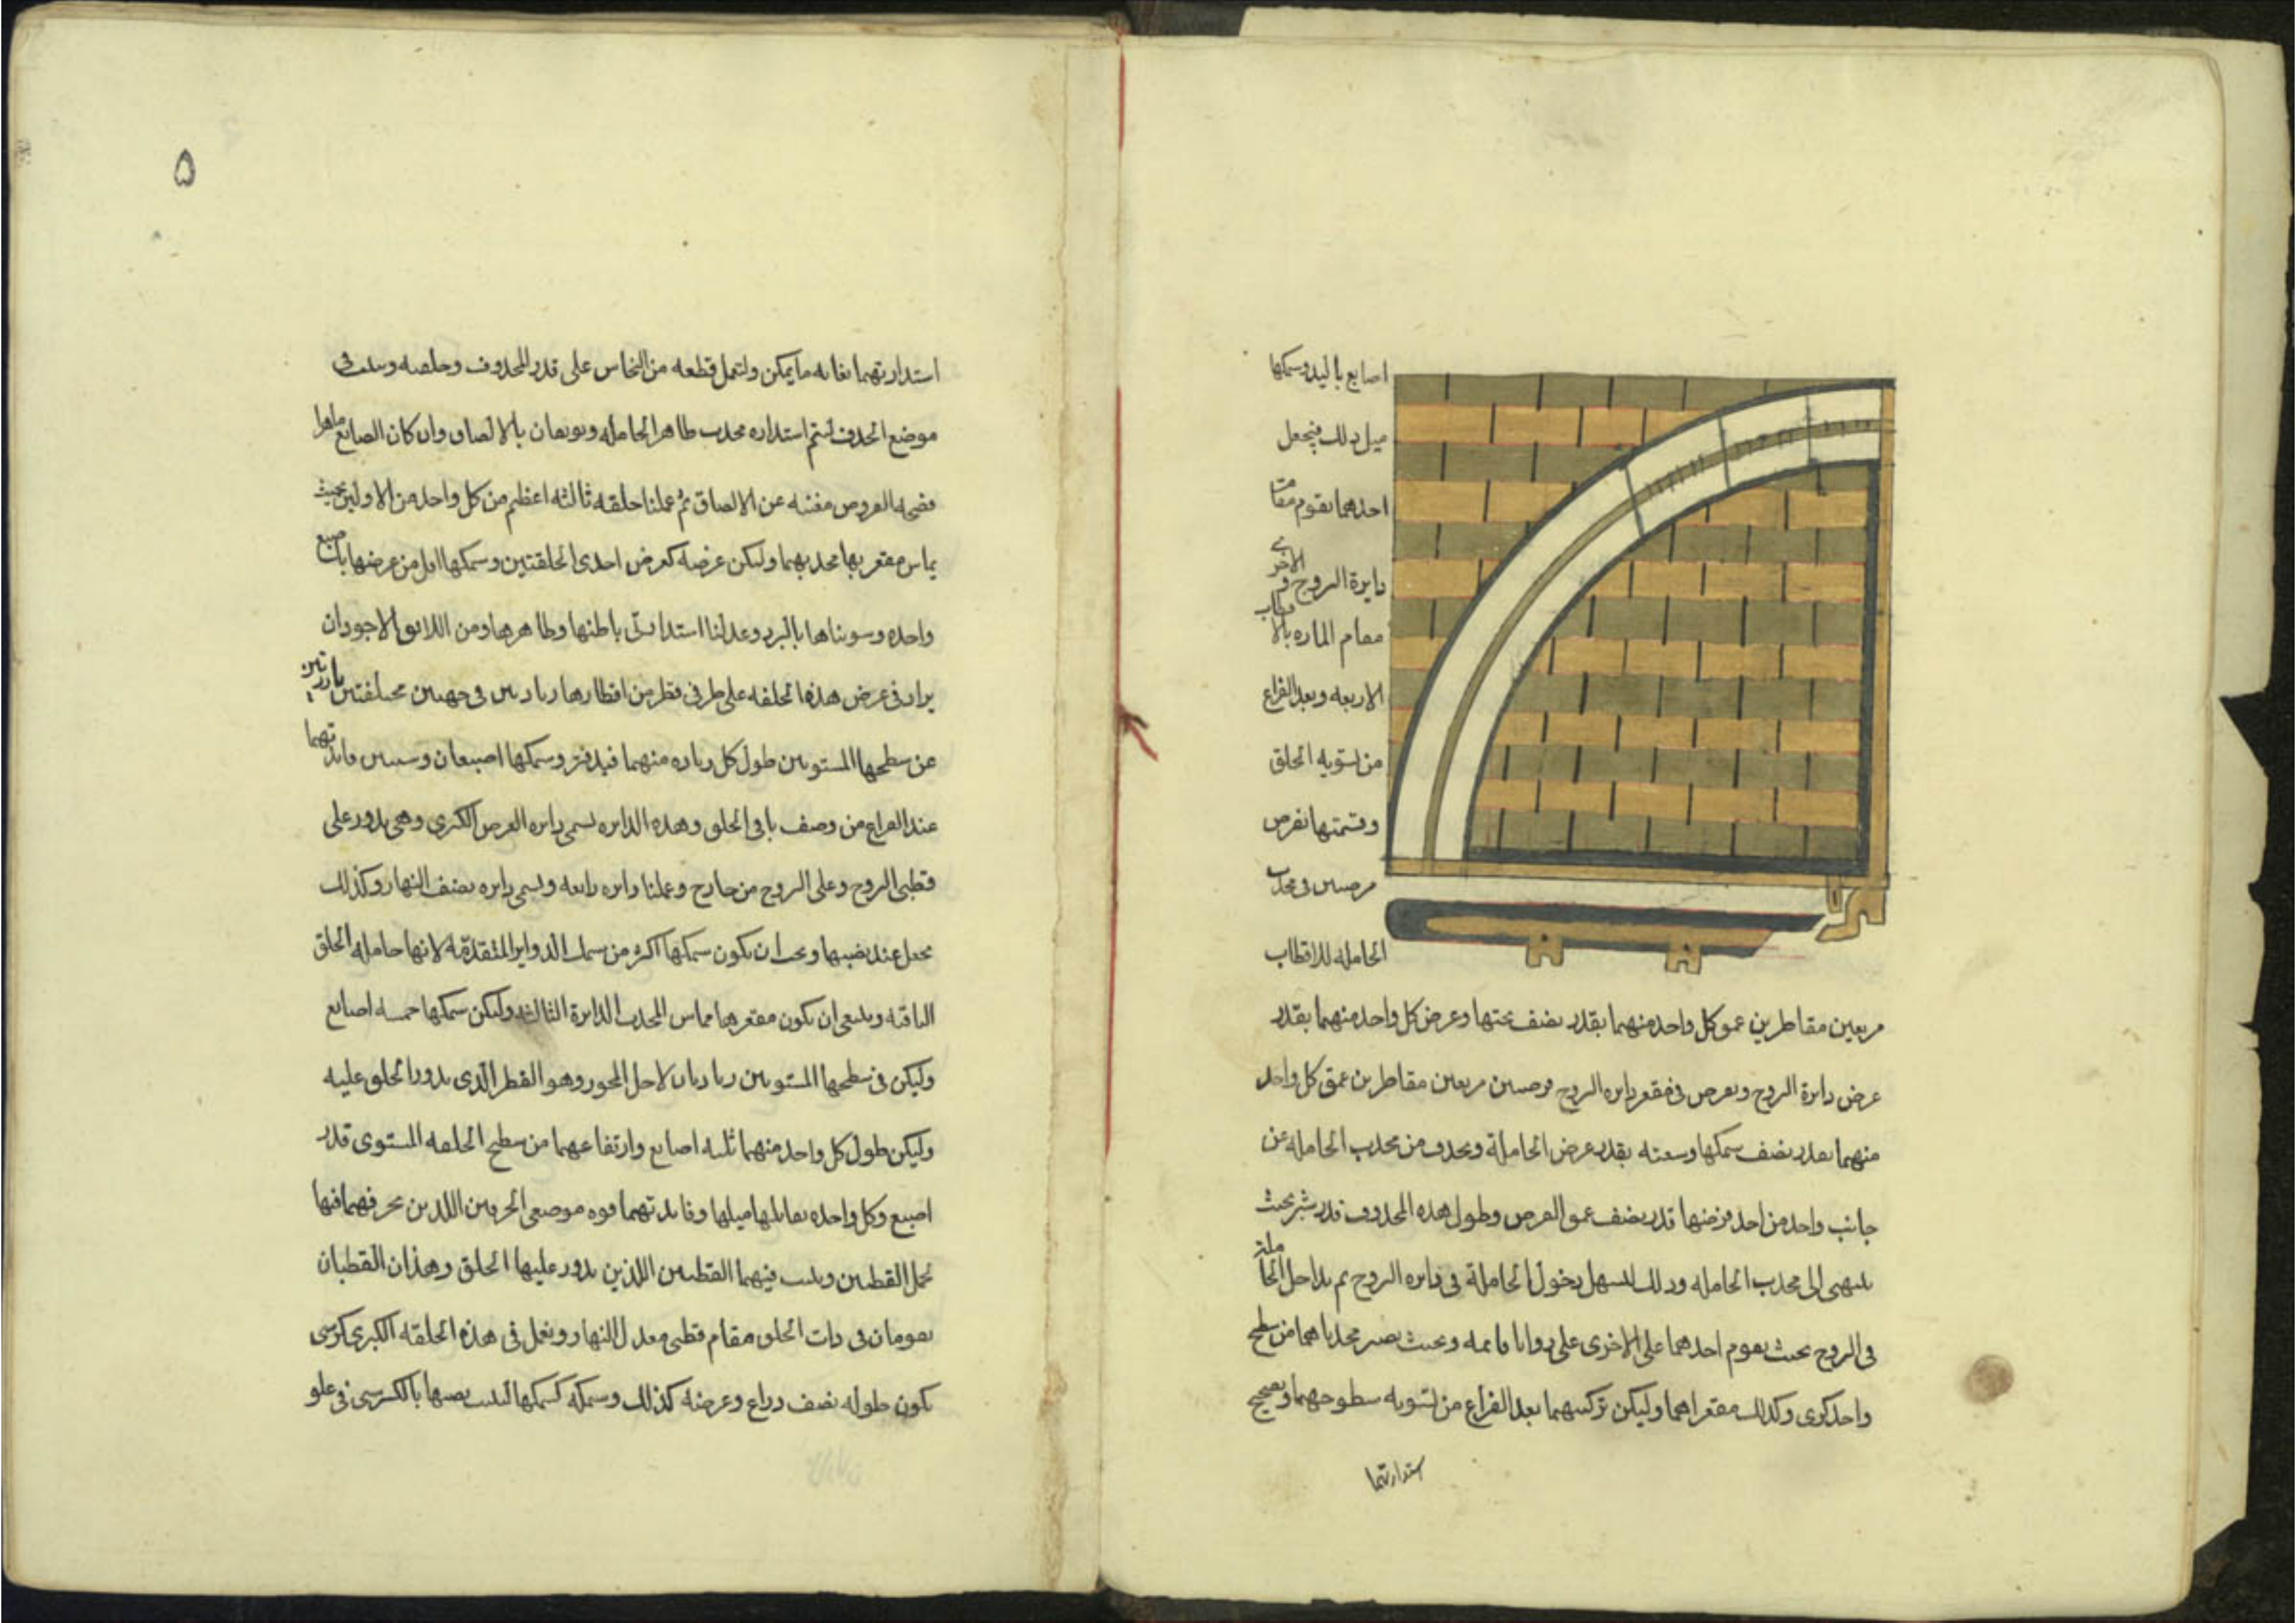 اصابع باليد وسمكها
مثل ذلك فيجعل
احدهما تقوم مقام
دايرة البروج و الاخرى
مقام الماره بالاقطاب
الاربعه وبعد الفراغ
من تسويه الحلق
وقسمتها نفرض
فرضين فى محدب
الحامله للاقطاب
مربعين مقاطرين عمق كل واحد منهما بقدر نصف ثخنها وعرض كل واحد منهما بقدر
عرض دايرة البروج ونفرض فى مقعر دايره البروج فرضين مربعين مقاطرين عمق كل واحد
منهما بقدر نصف سمكها وسعته بقدر عرض الحاملة ونحذف من محدب الحامله عن
جانب واحد من احد فرضيها قدر نصف عمق الفرض وطول هذه المحذوف قدر شبر بحيث
ينتهى الى محدب الحامله وذلك ليسهل دخول الحاملة فى دايره البروج ثم نداخل الحاملة
فى البروج بحيث يقوم احدهما على الاخرى على زوايا قايمه وبحيث يصير محدباهما من سطح
واحد كرى وكذلك مقعراهما وليكن تركيبهما بعد الفراغ من تسويه سطوحهما وتصحيح
استدارتهما
۵
استدارتهما بغايه ما يمكن ولتعمل قطعه من النحاس على قدر المحذوف و
موضع الحذف ليتم استداره محدب ظاهر الحامله ويوثقان بالالصاق وان كان الصانع ماهرا
العروض مغنيه عن الالصاق ثم عملنا حلقه ثالثه اعظم من كل واحد من الاولين بحيث
يماس مقعرها محدبهما وليكن عرضه كعرض احدى الحلقتين وسمكها اقل من عرضها باصبع
واحده وسويناها بالبرد وعدلنا استدارتى باطنها وظاهرها ومن اللايق الاجود ان
يزاد فى عرض هذه الحلقه على طرفى قطر من اقطارها زيادتين فى جهتين مختلفتين بارزتين
عن سطحها المستويين طول كل زياده منهما قيد فتر وسمكها اصبعان وسنبين فايدتهما
عند الفراغ من وصف باقى الحلق وهذه الدايره تسمى دايره العرض الكبرى وهى تدور على
قطبى البروج وعلى البروج من خارج وعملنا دايره رابعه وتسمى دايره نصف النهار وكذلك
تجعل عند نصبها ويجب ان يكون سمكها اكثر من سمك الدواير المتقدمة لانها حامله الحلق
الباقيه وينبغى ان يكون مقعرها مماس المحدب الدايرة الثالثه وليكن سمكها خمسه اصابع
وليكن فى سطحها المستويين زيادتان لاجل المحور وهو القطر الذى تدور الحلق عليه
وليكن طول كل واحد منهما ثلثه اصابع وارتفاعهما من سطح الحلقه المستوى قدر
اصبع وكل واحده يقابلها مثلها وفايدتهما قوه موضعى اللذين فيها
لحمل القطبين ويثبت فيهما القطبين اللذين تدور عليها الحلق وهذان القطبان
يقومان فى ذات الحلق مقام قطبى معدل النهار ونعمل فى هذه الحلقه الكبرى كرسى
يكون طوله نصف ذراع وعرضه كذلك وسمكه كسمكها ليثبت نصبها بالكرسى فى علو